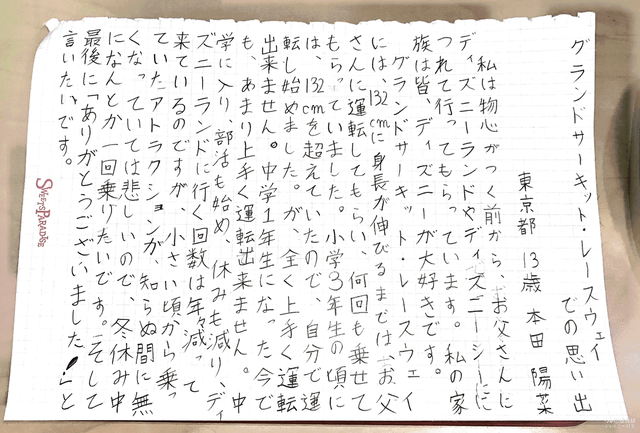 グランドサーキット・レースウェイ
での思い出
東京都 13歳 本田 陽菜
私は物心がつく前から、お父さんに
ディズニーランドやディズニーシーに
つれて行ってもらっています。私の家
族は皆、ディズニーが大好きです。
グランドサーキット・レースウェイ
には、132cmに身長が伸びるまでは、お父
さんに運転してもらい、何回も乗せて
もらっていました。小学3年生の頃に
は、132cmを超えていたので、自分で運
転し始めました。が、全く上手く運転
出来ません。中学1年生になった今で
も、あまり上手く運転出来ません。中
学に入り、部活も始め、休みも減り、ディ
ズニーランドに行く回数は年々減って
来ているのですが、小さい頃から乗っ
ていたアトラクションが、知らぬ間に無
くなっていては悲しいので、冬休み中
になんとか一回乗りたいです。そして
最後に「ありがとうございました!」と
言いたいです。
SWEETS PARADISE